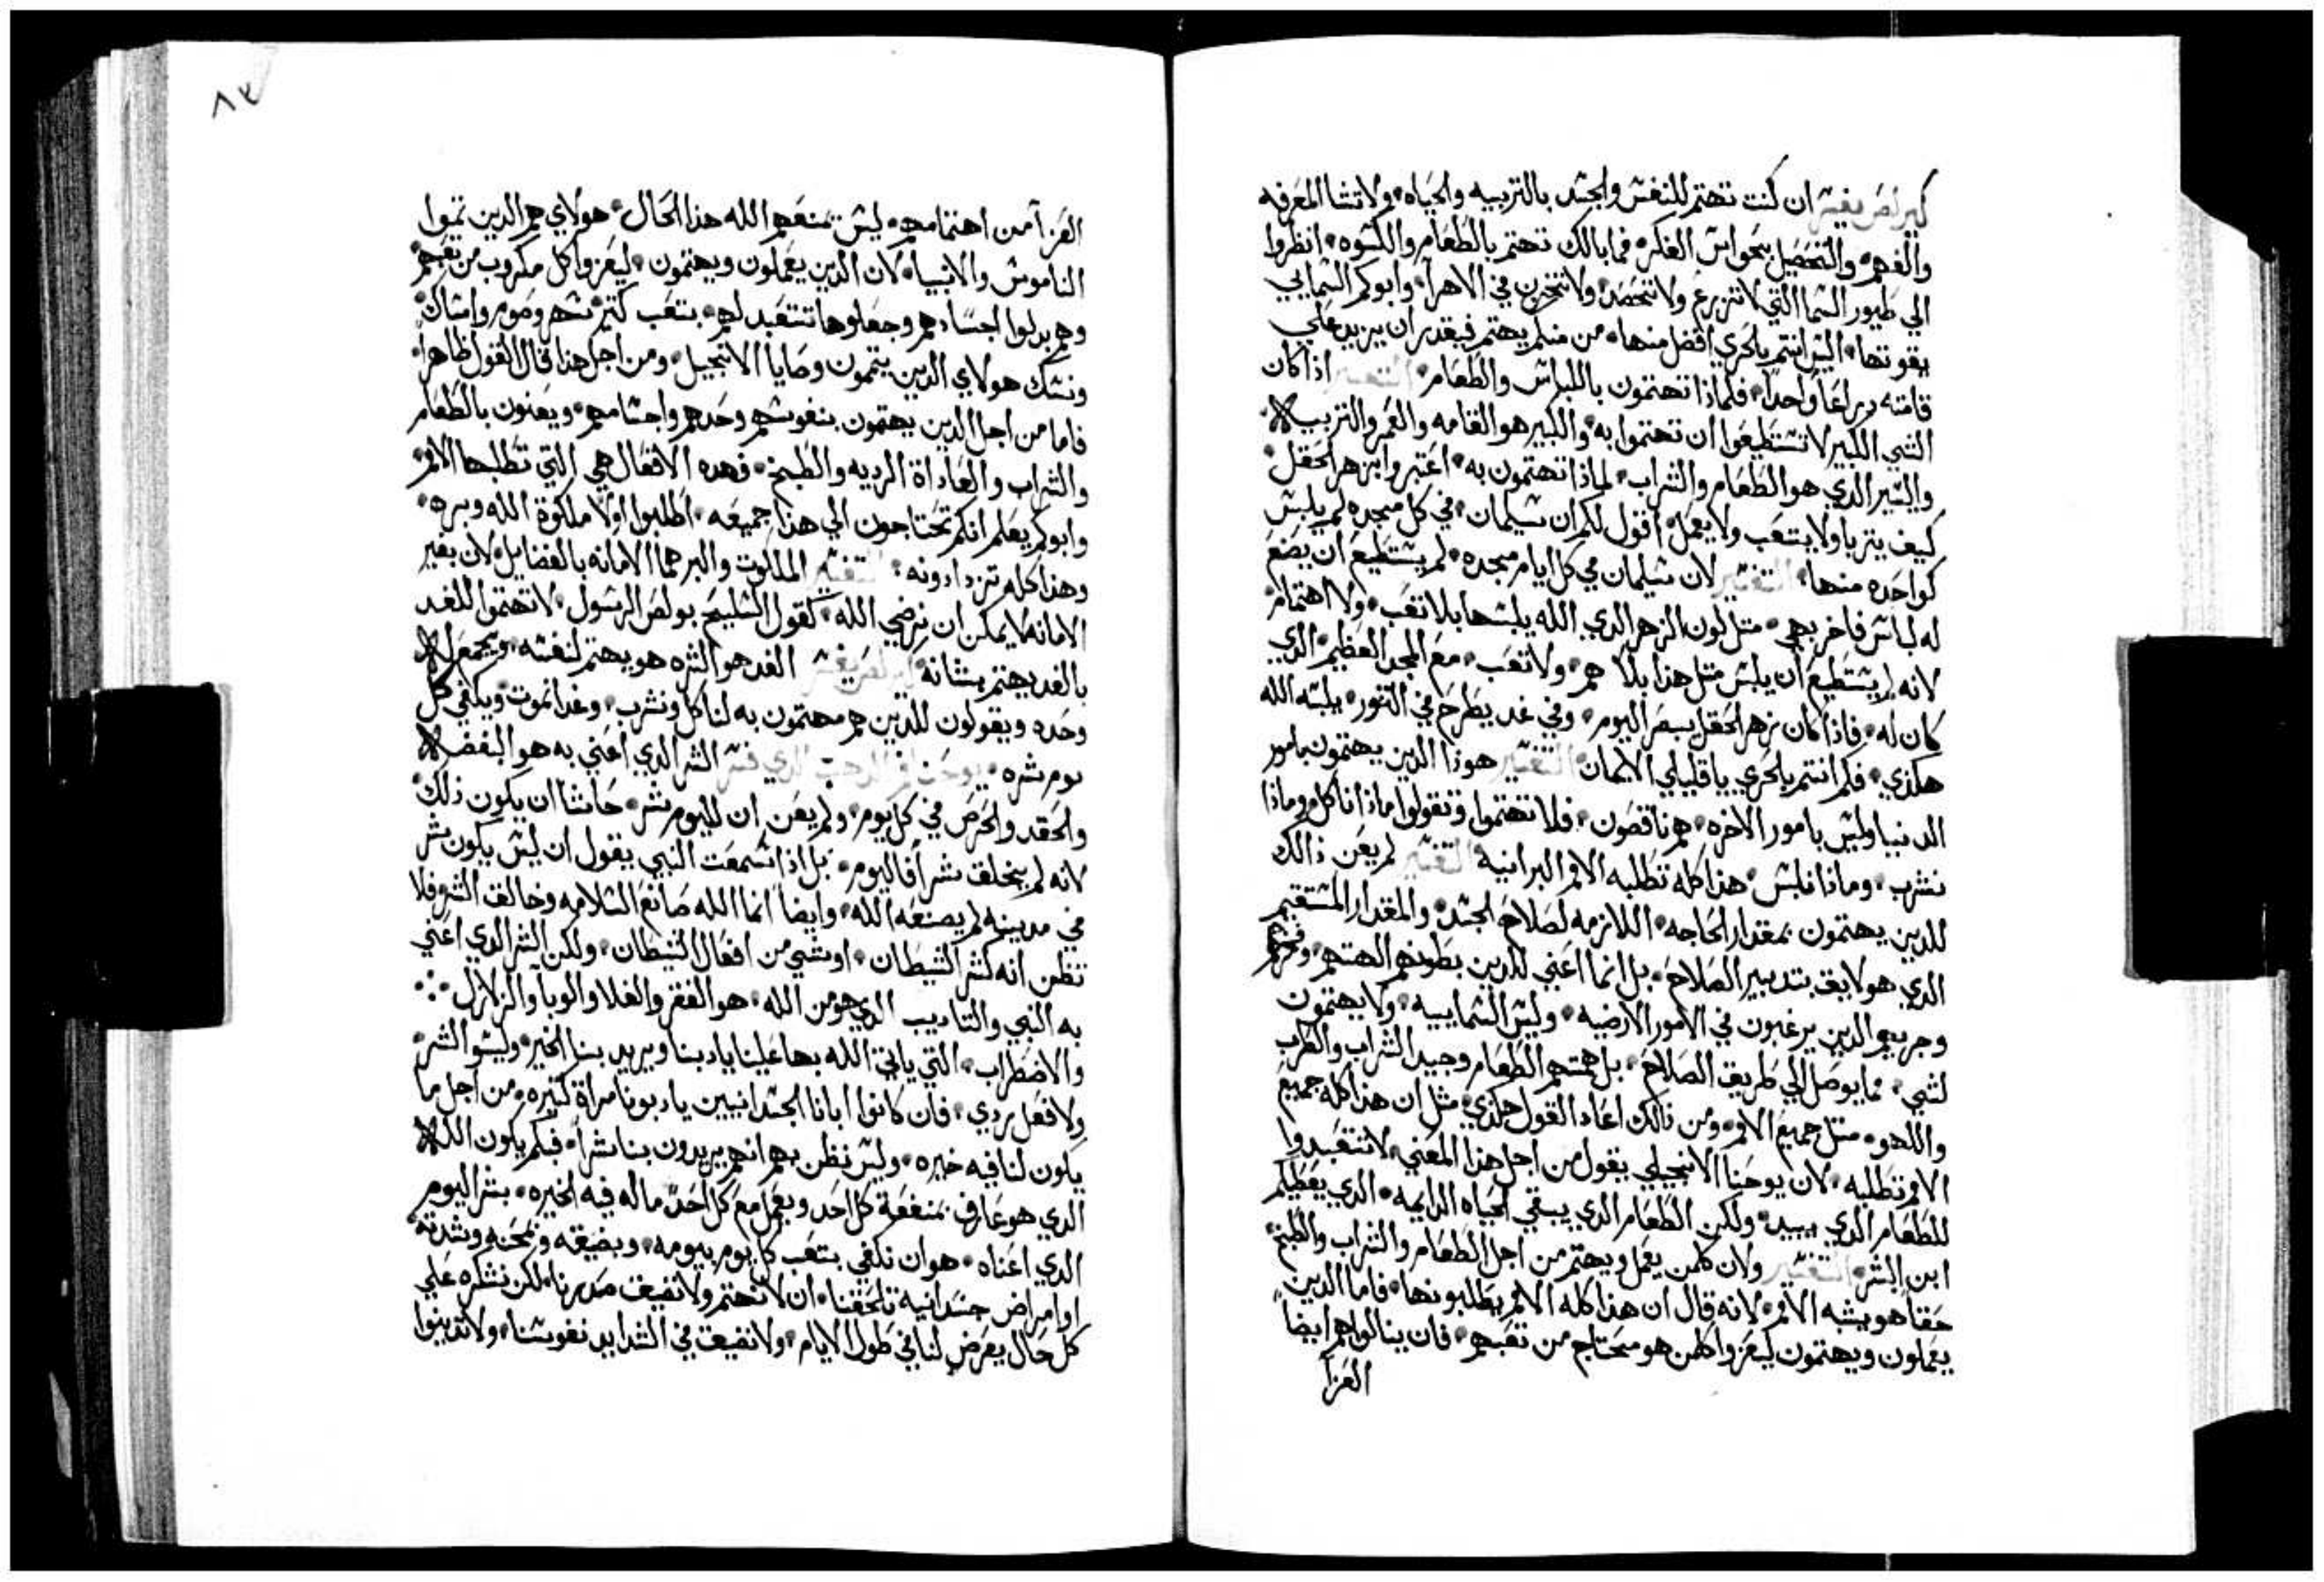 كيرلص يفسر ان كنت تهتم للنفس والجسد بالتربيه والحياه ولا تنشا المعرفه
والفهم والتحصيل بحواس الفكر فما بالك تهتم بالطعام والكسوه انظروا
الي طيور السما التي لا تزرع ولا تحصد ولا تخزن في الاهرآ وابوكم السمايي
يقوتها اليس انتم بالحري افضل منها من منكم يهتم فيقدر ان يزيد علي
قامته دراعا واحدا فلماذا تهتمون باللباس والطعام التفسير اذا كان
الشي الكبير لا تستطيعوا ان تهتموا به والكبير هو القامه والعمر والتربيه
واليسير الدي هو الطعام والشراب لماذا تهتمون به اعتبروا بزهر الحقل
كيف يتربا ولا يتعب ولا يعمل اقول لكم ان سليمان في كل مجده لم يلبس
كواحده منها التفسير لان سليمان في كل ايام مجده لم يستطيع ان يضع
له لباس فاخر بهي متل لون الزهر الدي الله يلبسها بلا تعب ولا اهتمام
لانه لم يستطيع ان يلبس متل هذا بلا هم ولا تعب مع المجد العظيم الدي
كان له فاذا كان زهر الحقل يبصر اليوم وفي غد يطرح في التنور يلبسه الله
هكدي فكم انتم بالحري يا قليلي الايمان التفسير هوذا الدين يهتمون بامور
الدنيا وليس بامور الاخره هم ناقصون فلا تهتموا وتقولوا ماذا ناكل وماذا
نشرب وماذا نلبس هذا كله تطلبه الامم البرانيه التفسير لم يعن ذالك
للدين يهتمون بمقدار الحاجه اللازمه لصلاح الجسد والمقدار المستقيم
الدي هو لايق بتدبير الصلاح بل انما اعني للدين بطونهم الهتهم وفخرهم
وجريهم الدين يرغبون في الامور الارضيه وليس السماييه ولا يهتمون
لشي مما يوصل الي طريق الصلاح بل همتهم الطعام وجيد الشراب والطرب
واللهو متل جميع الامم ومن ذالك اعاد القول هكدي مثل ان هذا كله جميع
الامم تطلبه لان يوحنا الانجيلي يقول من اجل هذا المعني لا تتعبدوا
للطعام الدي يبيد ولكن الطعام الدي يبقي الحياه الدايمه الدي يعطيكم
ابن البشر التفسير ولان كلمن يعمل ويهتم من اجل الطعام والشراب والطبخ
حقا هو يشبه الامم لانه قال ان هذا كله الامم يطلبونها فاما الدين
يعملون ويهتمون ليعزوا كلمن هو محتاج من تعبهم فان ينالوا هم ايضا
العزآ
٨٣
العزآ من اهتمامهم ليس تمنعهم الله هذا الحال هولاي هم الدين تموا
الناموس والانبيا لان الدين يعملون ويهتمون ليعزوا كل مكروب من تعبهم
وهم بدلوا اجسادهم وجعلوها تتعبد لهم بتعب كتير سهر وصوم وامساك
ونسك هولاي الدين يتمون وصايا الانجيل ومن اجل هذا قال القول ظاهرا
فاما من اجل الدين يهتمون بنفوسهم وحدهم واجسامهم ويعنون بالطعام
والشراب والعاداة الرديه والطبخ فهده الافعال هي التي تطلبها الامم
وابوكم يعلم انكم تحتاجون الي هذا جميعه اطلبوا اولا ملكوة الله وبره
وهذا كله تزدادونه التفسير الملكوت والبر هما الامانه بالفضايل لان بغير
الامانه لا يمكن ان نرضي الله كقول السليح بولص الرسول لا تهتموا للغد
بالغد يهتم بشانه كيرلص يفسر الغد هو الشره هو يهتم لنفسه ويجمع له
وحده ويقولون للدين هم مهتمون به لناكل ونشرب وغدا نموت ويكفي كل
يوم شره يوحنا فم الدهب الدي فسر الشر الدي اعني به هو البغضه
والحقد والحرص في كل يوم ولم يعن ان لليوم شر حاشا ان يكون ذلك
لانه لم يخلق شرا فاليوم بل اذا سمعت النبي يقول ان ليس يكون شر
في مدينه لم يصنعه الله وايضا انما الله صانع السلامه وخالق الشر فلا
تظن انه كشر الشيطان او شي من افعال الشيطان ولكن الشر الدي اعني
به النبي والتاديب الدي هو من الله هو الفقر والغلا والوبا والزلازل
والاضطراب التي ياتي الله بها علينا يادبنا ويريد بنا الخير وليسو الشر
ولا فعل ردي فان كانوا ابانا الجسدانيين يادبونا مراة كتيره من اجل ما
يكون لنا فيه خيره وليس نظن بهم انهم يريدون بنا شرا فبكم يكون الله
الدي هو عارف بمنفعة كل احد ويعمل مع كل احد ما له فيه الخيره بشر اليوم
الدي اعناه هو ان نكتفي بتعب كل يوم بيومه وبضيقه ومحنه وشدته
او امراض جسدانيه تلحقنا ان لا نهتم ولا تضيق صدرنا لكن نشكره علي
كل حال يعرض لنا في طول الايام ولا نضيق في الشدايد نفوسنا ولا تدينوا